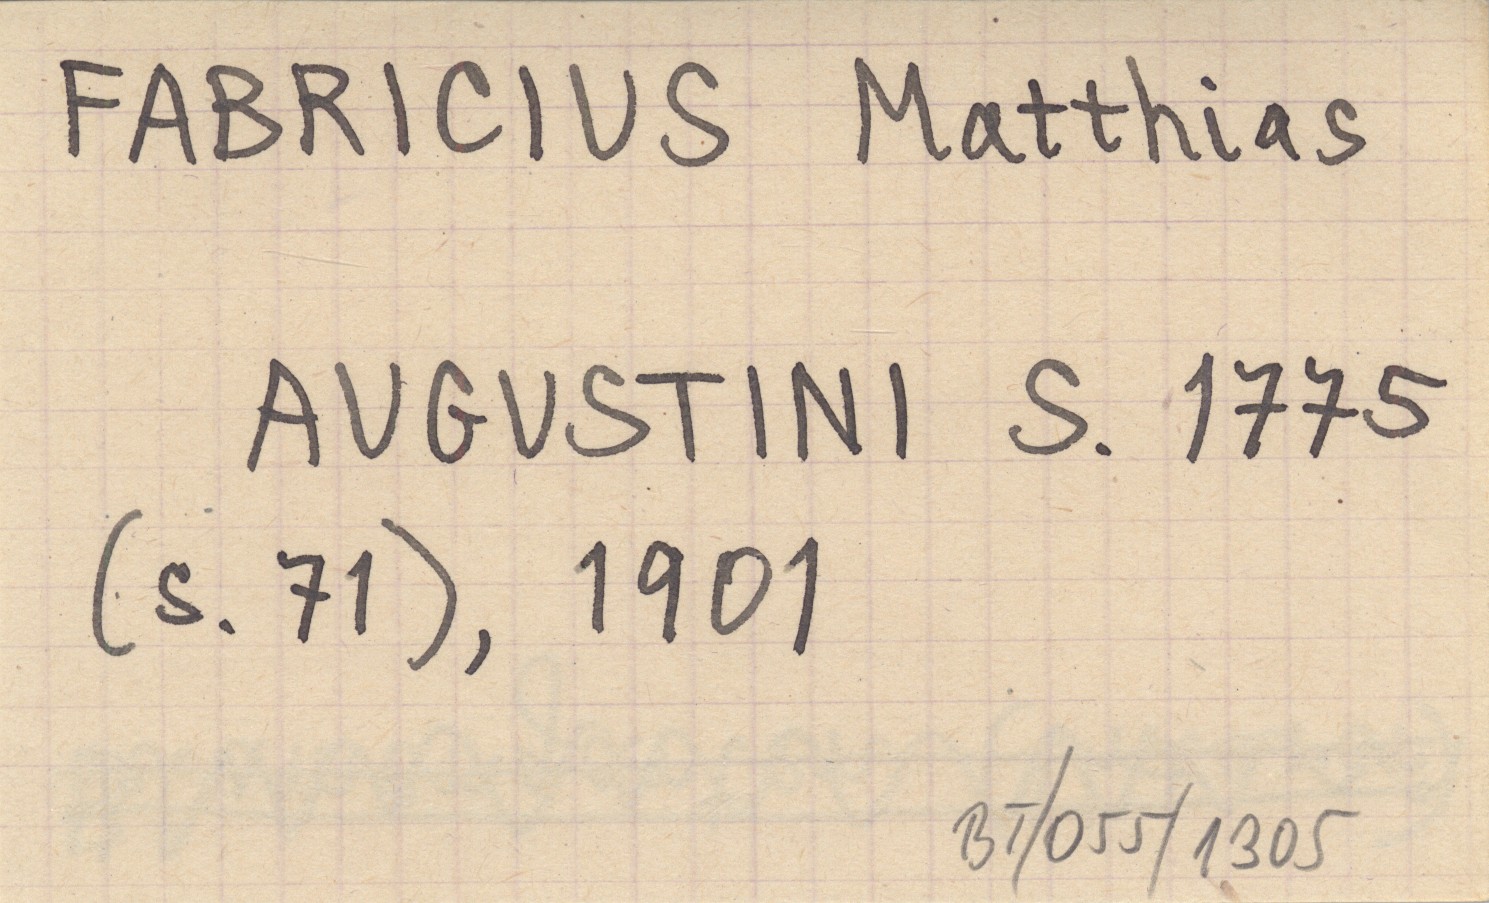 FABRICIUS Matthias
AUGUSTINI S. 1775
(s. 71), 1901
BT/055/1305